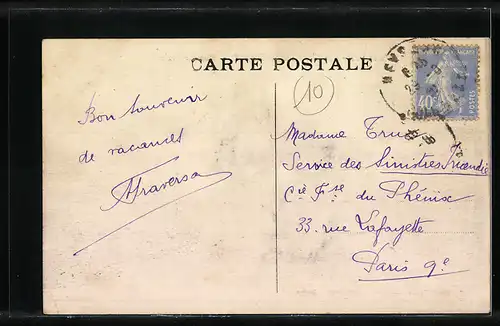 CARTE POSTALE
10
Bon souvenir
de vacances
Atraversa
Madame Truc
Service des Sinistres Incendie
Cie Fse du Phénix
33, rue Lafayette
Paris 9e
40c
POSTES